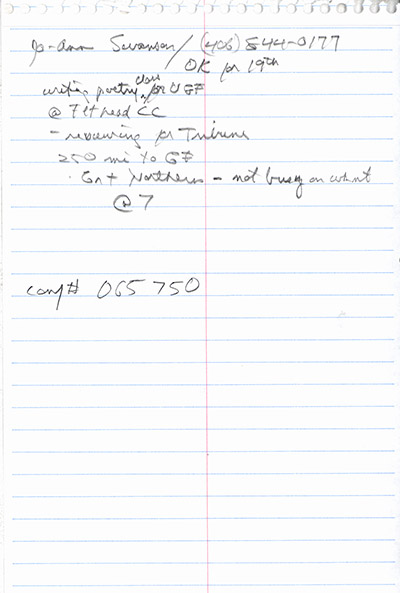 Jo-Ann Swanson / (406) 844-0177
OK for 19th
writing poetry class for UGF
@ Flthead CC
- reviewing for Tribune
250 mi to GF
Grt Northern - not busy on
@ 7
conf# 065750